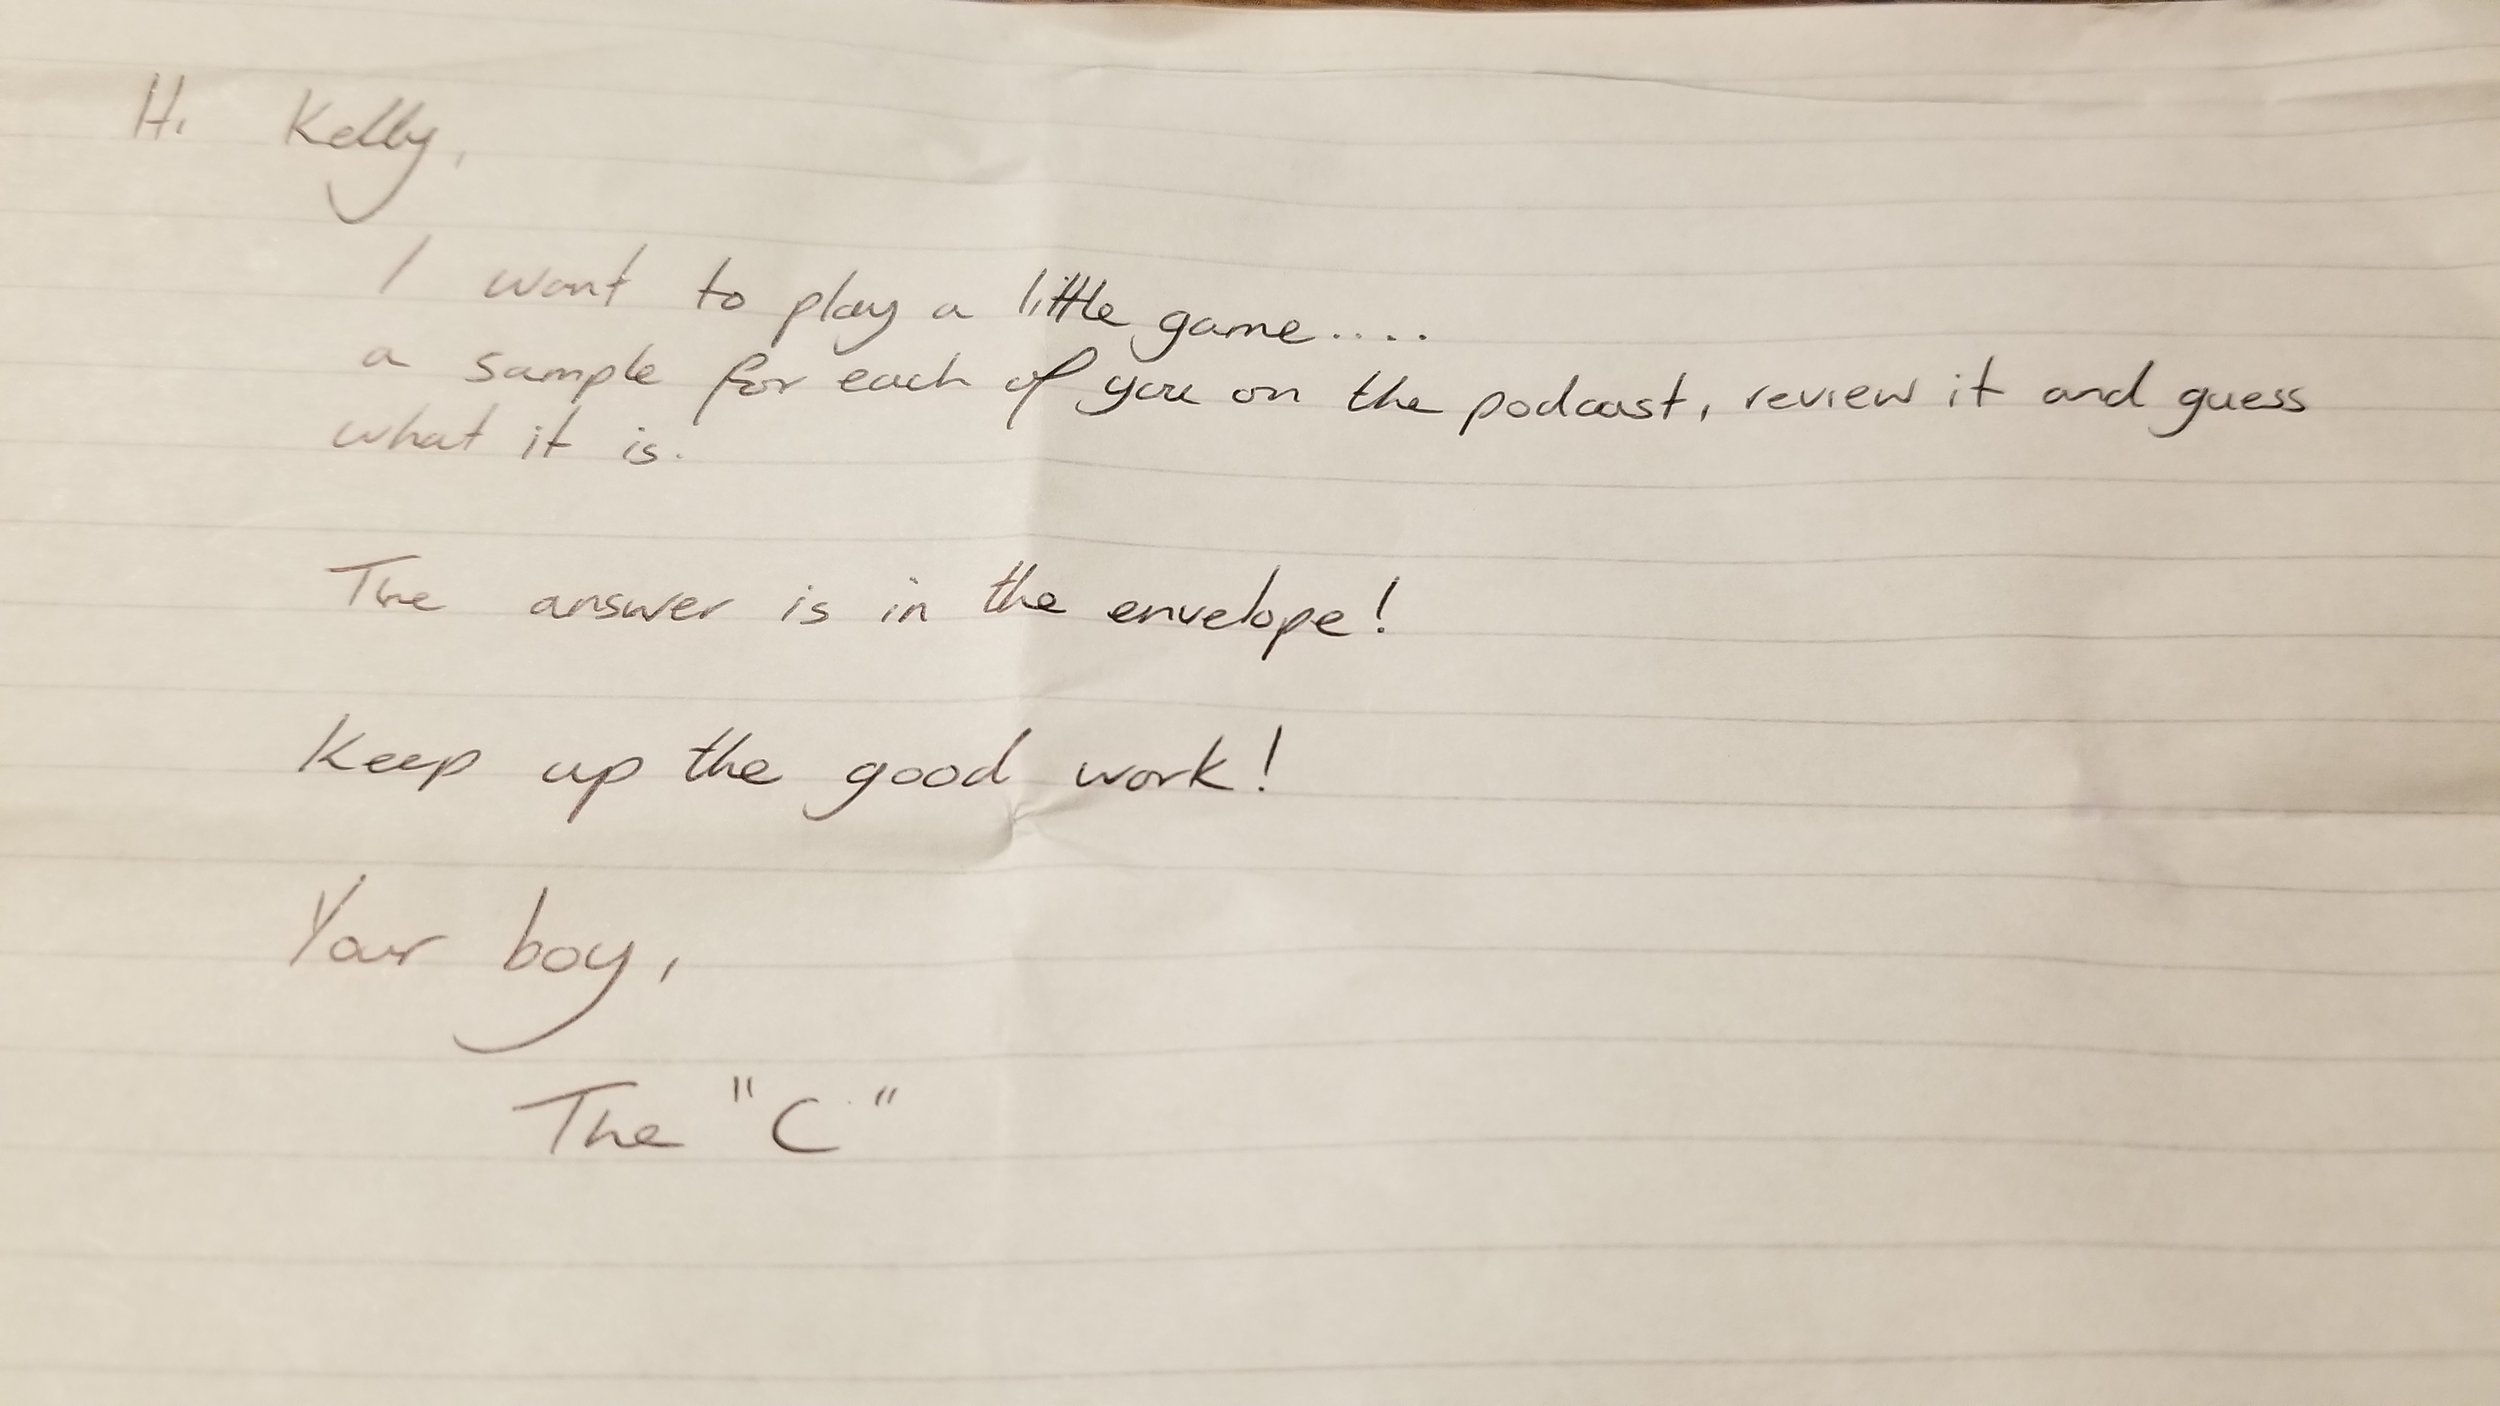 Hi Kelly,
I want to play a little game....
a sample for each of you on the podcast, review it and guess
what it is.
The answer is in the envelope!
Keep up the good work!
Your boy,
The "C"